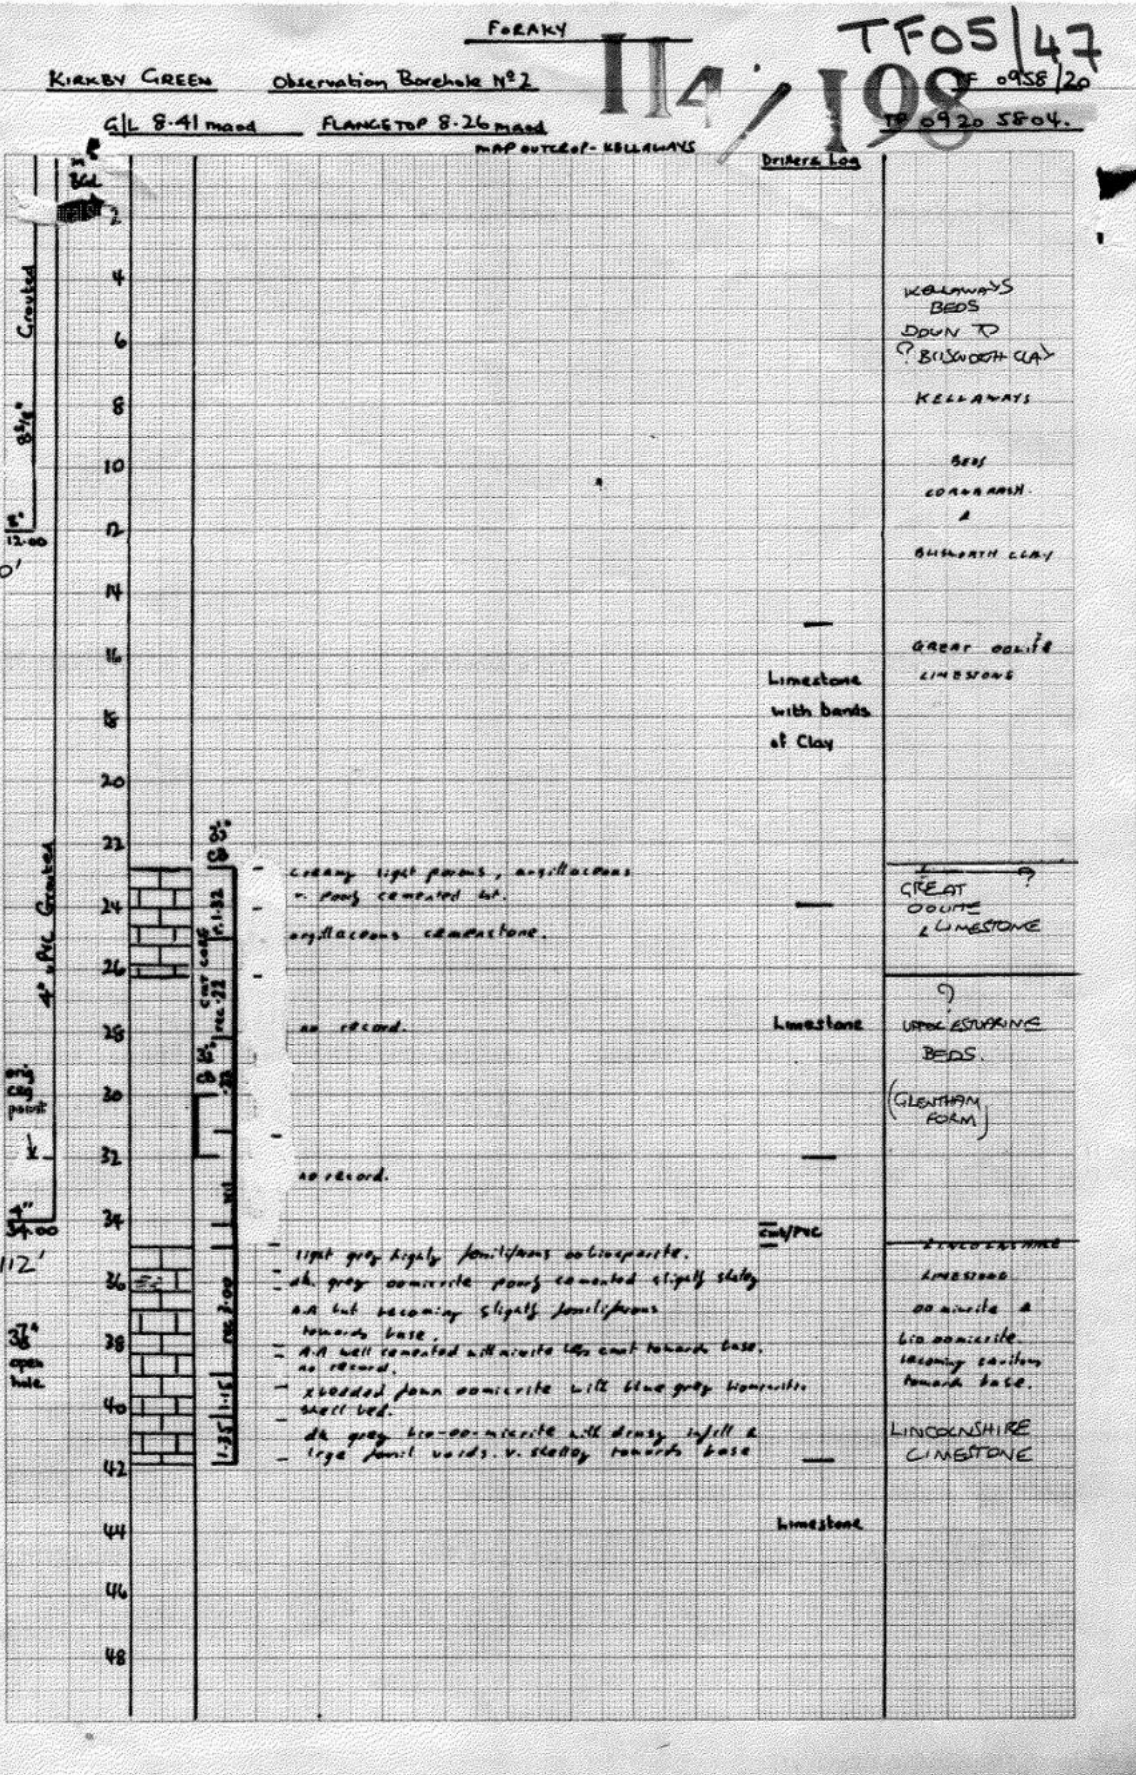 FORAKY
TF05/47
KIRKBY GREEN
Observation Borehole Nº 2
114/198
TF 0958/20
G/L 8.41 maod
FLANGETOP 8.26 maod
TF 0920 5804.
MAP OUTCROP - KELLAWAYS
Drillers Log
m
BGL
2
4
6
8
10
12
14
16
18
20
22
24
26
28
30
32
34
36
38
40
42
44
46
48
Grouted
8⅝"
8"
12.00
0'
4" PVC Grouted
orig
csg
point
4"
34.00
112'
open
hole
CMT CORE
r.1.32
rec .22
Nil
rec 2.00
1.15
1.35
creamy light porous, argillaceous
v. poorly cemented lst.
argillaceous cementstone.
no record.
no record.
light grey highly fossiliferous oobiosparite.
dk. grey oomicrite poorly cemented slightly shaley
A.A but becoming slightly fossiliferous
towards base.
A.A well cemented with micrite less cmnt towards base.
no record.
xbedded fawn oomicrite with blue grey biomicrite.
shell bed.
dk grey bio-oo-micrite with drusy infill &
large fossil voids. v. shelley towards base
Limestone
with bands
of Clay
Limestone
cmt/PVC
Limestone
KELLAWAYS
BEDS
DOWN TO
? BLISWORTH CLAY
KELLAWAYS
BEDS
CORNBRASH
&
BLISWORTH CLAY
GREAT OOLITE
LIMESTONE
?
GREAT
OOLITE
LIMESTONE
?
UPPER ESTUARINE
BEDS.
(GLENTHAM
FORM)
LINCOLNSHIRE
LIMESTONE
oomicrite &
bio oomicrite.
becoming
toward base.
LINCOLNSHIRE
LIMESTONE